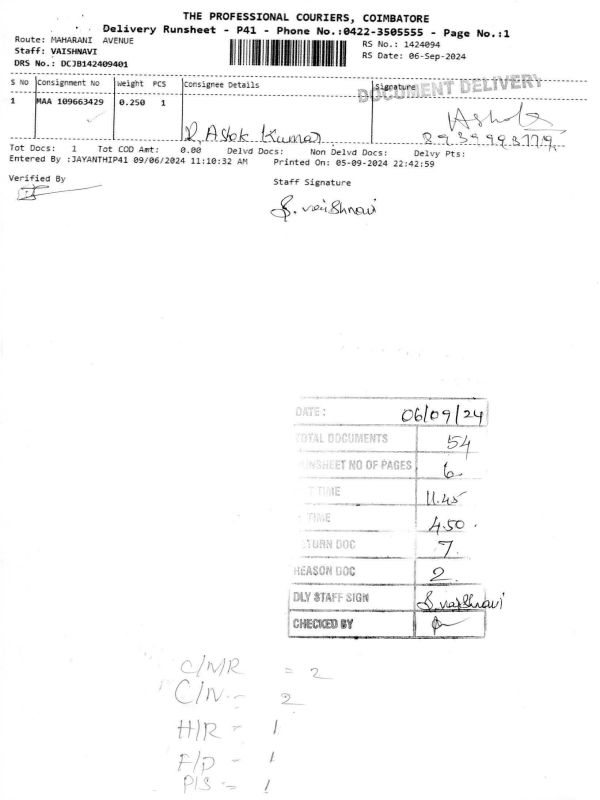 THE PROFESSIONAL COURIERS, COIMBATORE
Delivery Runsheet - P41 - Phone No.:0422-3505555 - Page No.:1
Route: MAHARANI AVENUE
RS No.: 1424094
Staff: VAISHNAVI
RS Date: 06-Sep-2024
DRS No.: DCJB142409401
S No Consignment No Weight PCS Consignee Details Signature
DOCUMENT DELIVERY
1 MAA 109663429 0.250 1
R. Ashok Kumar
Tot Docs: 1 Tot COD Amt: 0.00 Delvd Docs: Non Delvd Docs: Delvy Pts:
Entered By :JAYANTHIP41 09/06/2024 11:10:32 AM Printed On: 05-09-2024 22:42:59
Verified By Staff Signature
S. vaishnavi
DATE : 06/09/24
TOTAL DOCUMENTS 54
UNSHEET NO OF PAGES 6
T TIME 11.45
TIME 4.50
TURN DOC 7
REASON DOC 2
DLY STAFF SIGN S. vaishnavi
CHECKED BY
C/NR = 2
C/N - 2
H/R - 1
F/D - 1
P/S - 1